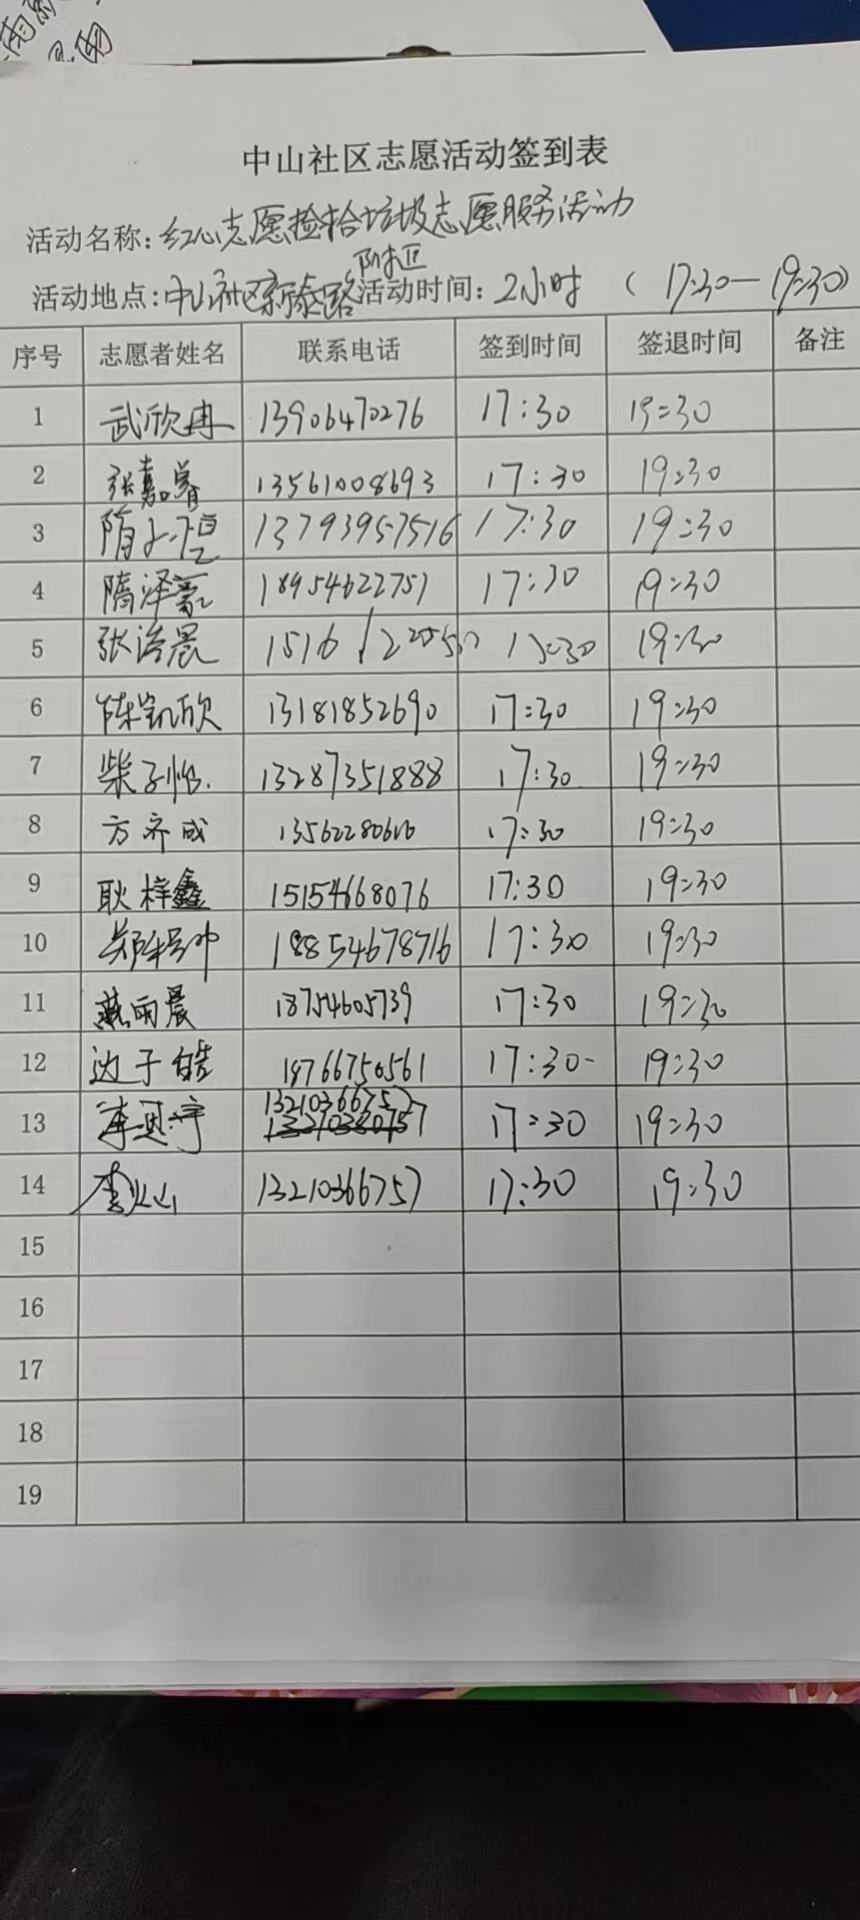 中山社区志愿活动签到表
活动名称: 红心志愿捡拾垃圾志愿服务活动
附近
活动地点: 中山社区新泰路 活动时间: 2小时 ( 17:30—19:30)
序号 志愿者姓名 联系电话 签到时间 签退时间 备注
1 武欣冉 13906470276 17:30 19:30
2 张嘉睿 13561008693 17:30 19:30
3 隋 13793957516 17:30 19:30
4 隋泽豪 18954622751 17:30 19:30
5 张浩晨 17:30 19:30
6 陈凯欣 13181852690 17:30 19:30
7 柴子怡 13287351888 17:30 19:30
8 方齐成 17:30 19:30
9 耿梓鑫 15154668076 17:30 19:30
10 郑 18854678716 17:30 19:30
11 燕雨晨 18754605739 17:30 19:30
12 边子皓 18766750561 17:30 19:30
13 李 13210366757 17:30 19:30
14 李 13210366757 17:30 19:30
15
16
17
18
19